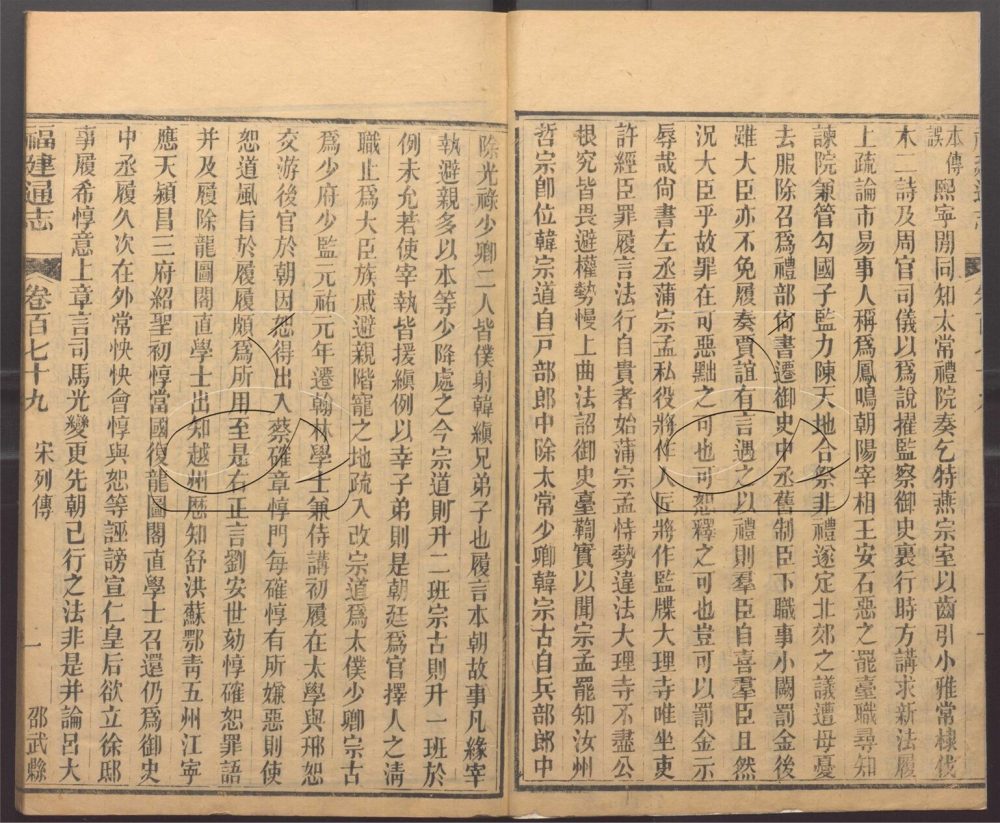 本傳
誤
熙寧開同知太常禮院奏乞特燕宗室以齒引小雅常棣伐
木二詩及周官司儀以爲說擢監察御史裏行時方講求新法履
上疏論市易事人稱爲鳳鳴朝陽宰相王安石惡之罷臺職尋知
諫院兼管勾國子監力陳天地合祭非禮遂定北郊之議遭母憂
去服除召爲禮部尙書遷御史中丞舊制臣下職事小闕罰金後
雖大臣亦不免履奏賈誼有言遇之以禮則羣臣自喜羣臣且然
況大臣乎故罪在可惡黜之可也可恕釋之可也豈可以罰金示
辱哉尙書左丞蒲宗孟私役將作人匠將作監牒大理寺唯坐吏
許經臣罪履言法行自貴者始蒲宗孟恃勢違法大理寺不盡公
根究皆畏避權勢慢上曲法詔御史臺鞫實以聞宗孟罷知汝州
哲宗卽位韓宗道自戸部郎中除太常少卿韓宗古自兵部郎中
除光祿少卿二人皆僕射韓縝兄弟子也履言本朝故事凡緣宰
執避親多以本等少降處之今宗道則升二班宗古則升一班於
例未允若使宰執皆援縝例以幸子弟則是朝廷爲官擇人之淸
職止爲大臣族戚避親階寵之地疏入改宗道爲太僕少卿宗古
爲少府少監元祐元年遷翰林學士兼侍講初履在太學與邢恕
交游後官於朝因恕得出入蔡確章惇門每確惇有所嫌惡則使
恕道風旨於履履頗爲所用至是右正言劉安世劾惇確恕罪語
并及履除龍圖閣直學士出知越州歷知舒洪蘇鄂靑五州江寧
應天潁昌三府紹聖初惇當國復龍圖閣直學士召還仍爲御史
中丞履久次在外常怏怏會惇與恕等誣謗宣仁皇后欲立徐邸
事履希惇意上章言司馬光變更先朝已行之法非是并論呂大
福建通志
卷百七十九
宋列傳
一
邵武縣